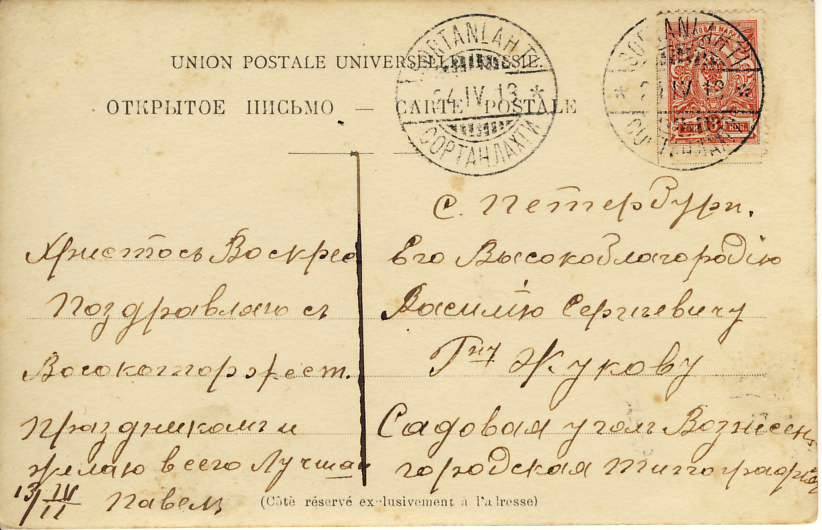 UNION POSTALE UNIVERSELLE. RUSSIE.
ОТКРЫТОЕ ПИСЬМО — CARTE POSTALE
SORTANLAHTI
24.IV.13
СОРТАНЛАХТИ
SORTANLAHTI
24.IV.13
Христосъ Воскресе
Поздравляю съ
Высокоторжест.
Праздникомъ и
желаю всего Лучшаго
13/IV
Павелъ
С. Петербургъ.
Его Высокоблагородію
Василию Сергиевичу
Гну Жукову
Садовая уголъ Вознесен.
городская типография
(Côté réservé exclusivement à l'adresse)